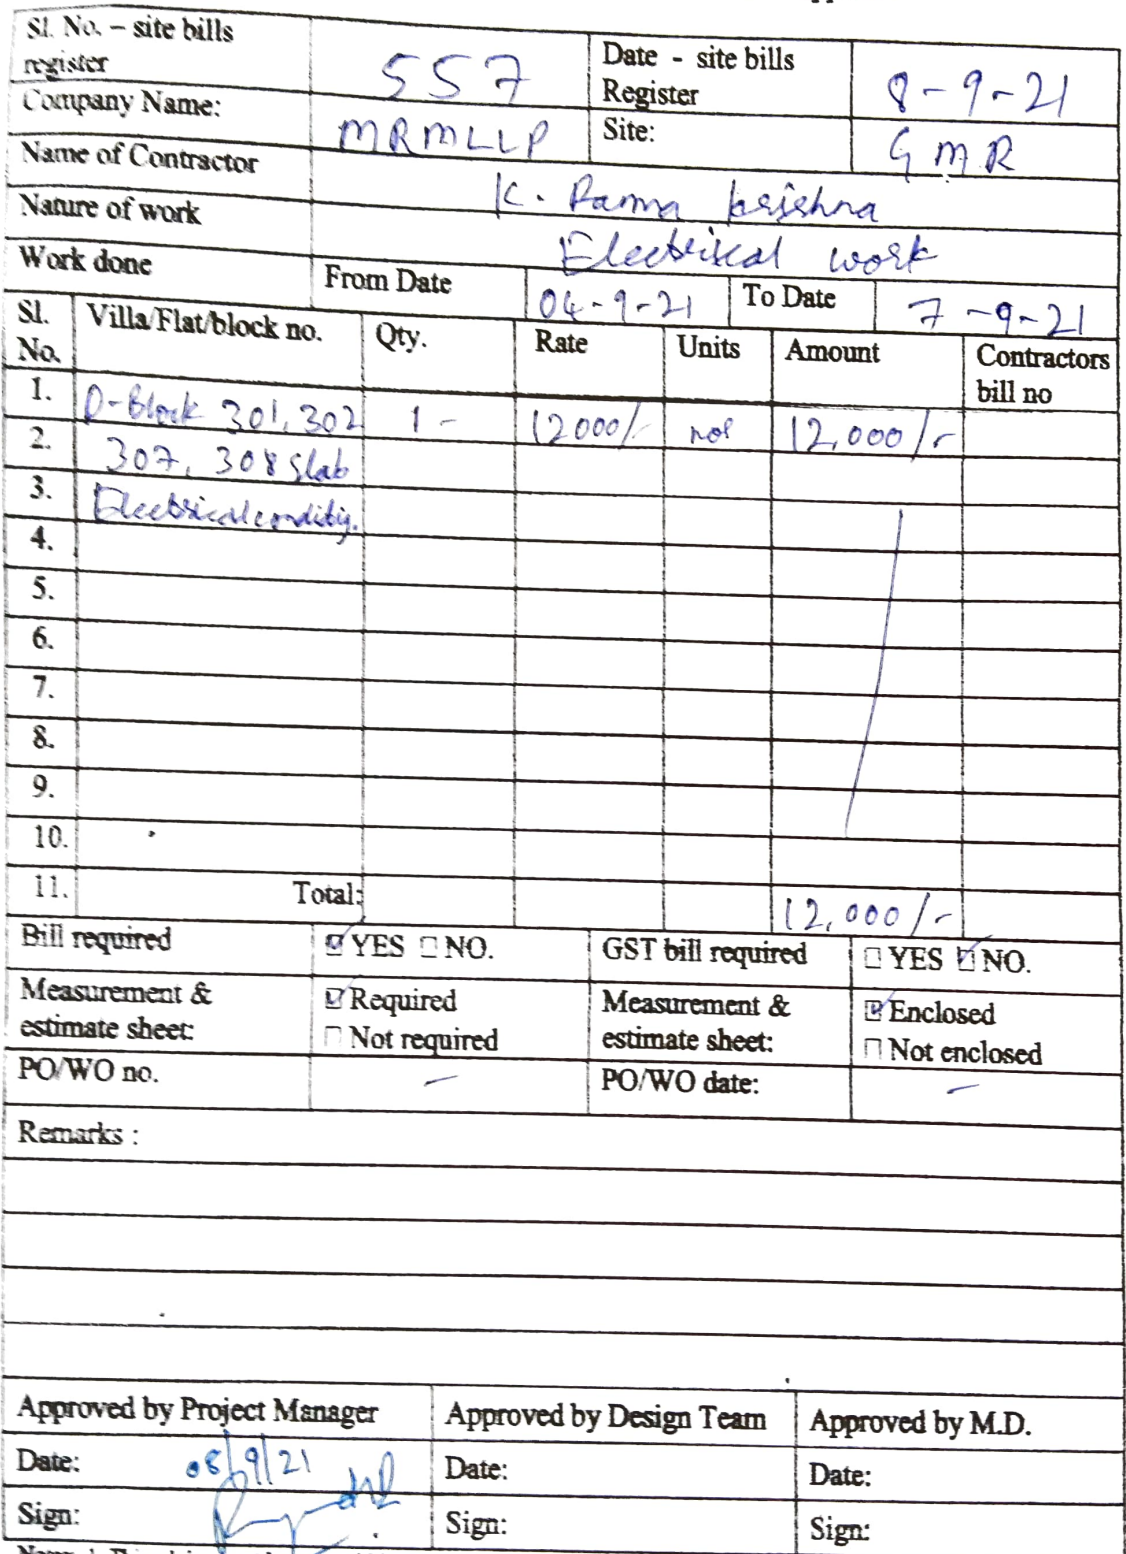 Sl. No. – site bills register 557 Date - site bills Register 8-9-21
Company Name: MRMLLP Site: GMR
Name of Contractor K. Rama krishna
Nature of work Electrical work
Work done From Date 04-9-21 To Date 7-9-21
Sl. No. Villa/Flat/block no. Qty. Rate Units Amount Contractors bill no
1. D-Block 301, 302 1 - 12000/- nos 12,000/-
2. 307, 308 Slab
3. Electrical
4.
5.
6.
7.
8.
9.
10.
11. Total: 12,000/-
Bill required ☑ YES ☐ NO. GST bill required ☐ YES ☑ NO.
Measurement & estimate sheet: ☑ Required ☐ Not required Measurement & estimate sheet: ☑ Enclosed ☐ Not enclosed
PO/WO no. - PO/WO date: -
Remarks :
Approved by Project Manager Approved by Design Team Approved by M.D.
Date: 08/9/21 Date: Date:
Sign: Sign: Sign: